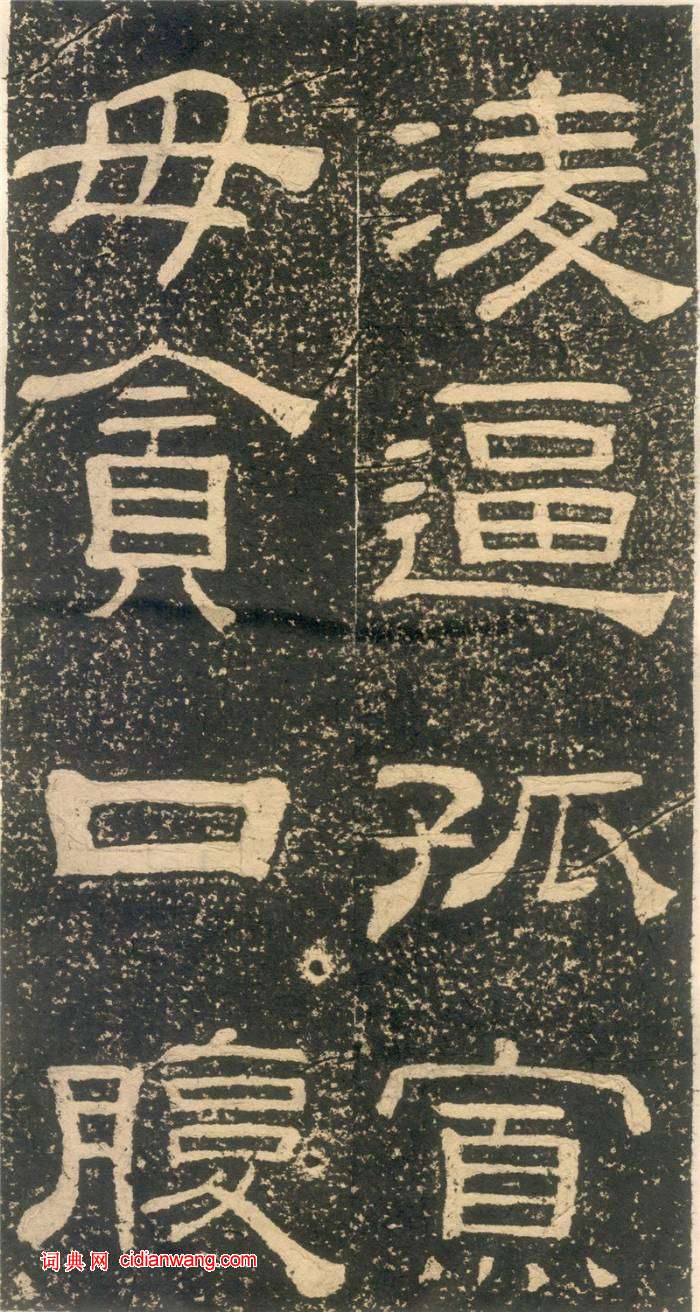 淩逼孤寡
毋貪口腹
词典网 cidianwang.com